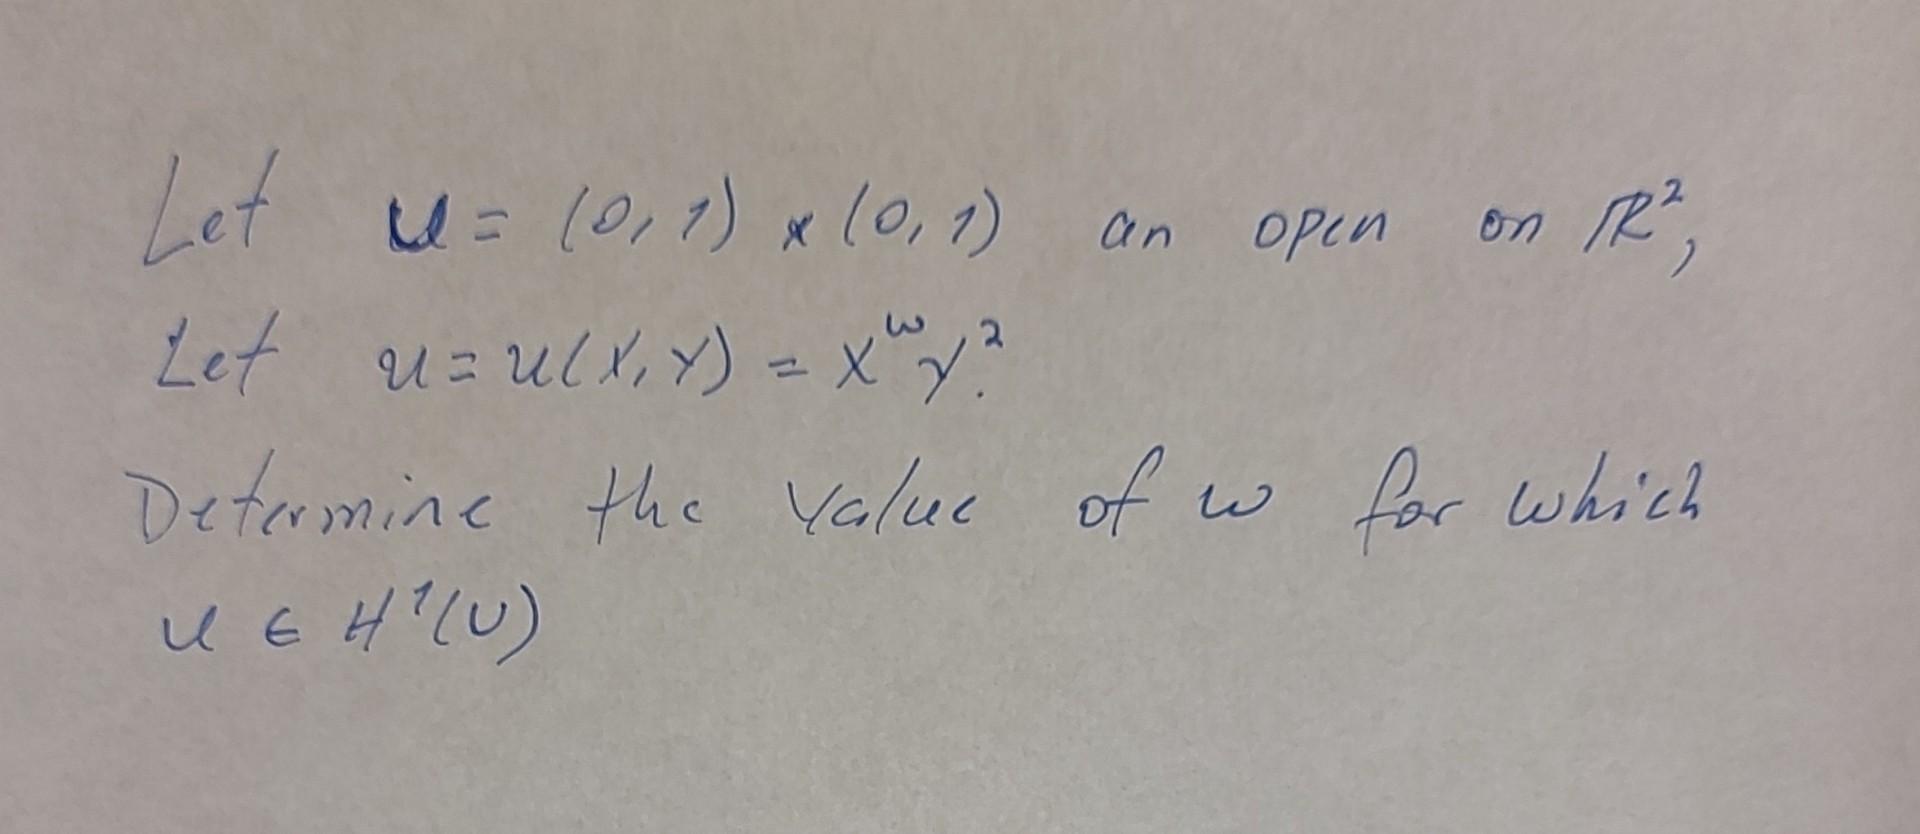 Let U = (0, 1) × (0, 1) an open on ℝ²,
Let u = u(x, y) = x^ω y².
Determine the value of ω for which
u ∈ H¹(U)